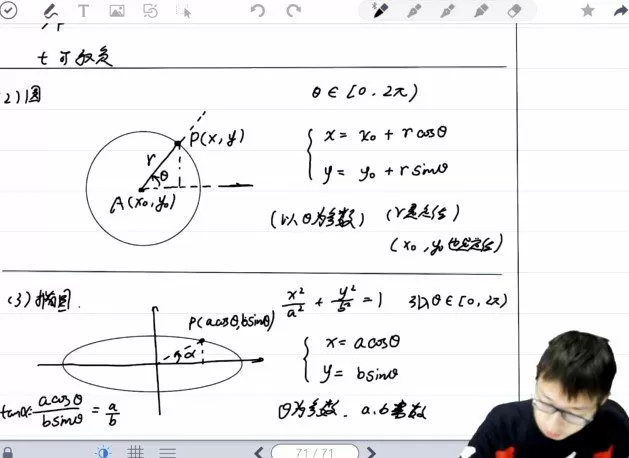 t 可取负
(2)圆
θ∈[0,2π)
P(x,y)
r
θ
A(x₀,y₀)
x = x₀ + r cosθ
y = y₀ + r sinθ
(以θ为参数) (r是定值)
(x₀, y₀也是定值)
(3)椭圆.
x²/a² + y²/b² = 1 引入θ∈[0,2π)
P(acosθ,bsinθ)
α
x = acosθ
y = bsinθ
tanα= acosθ/bsinθ = a/b
θ为参数. a.b常数
71/71